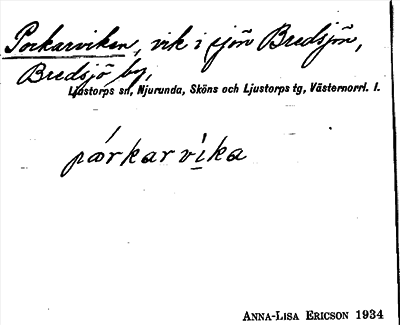 Porkarviken, vik i sjön Bredsjön,
Bredsjö by,
Ljustorps sn, Njurunda, Sköns och Ljustorps tg, Västernorrl. l.
pǽrkarvìka
ANNA-LISA ERICSON 1934